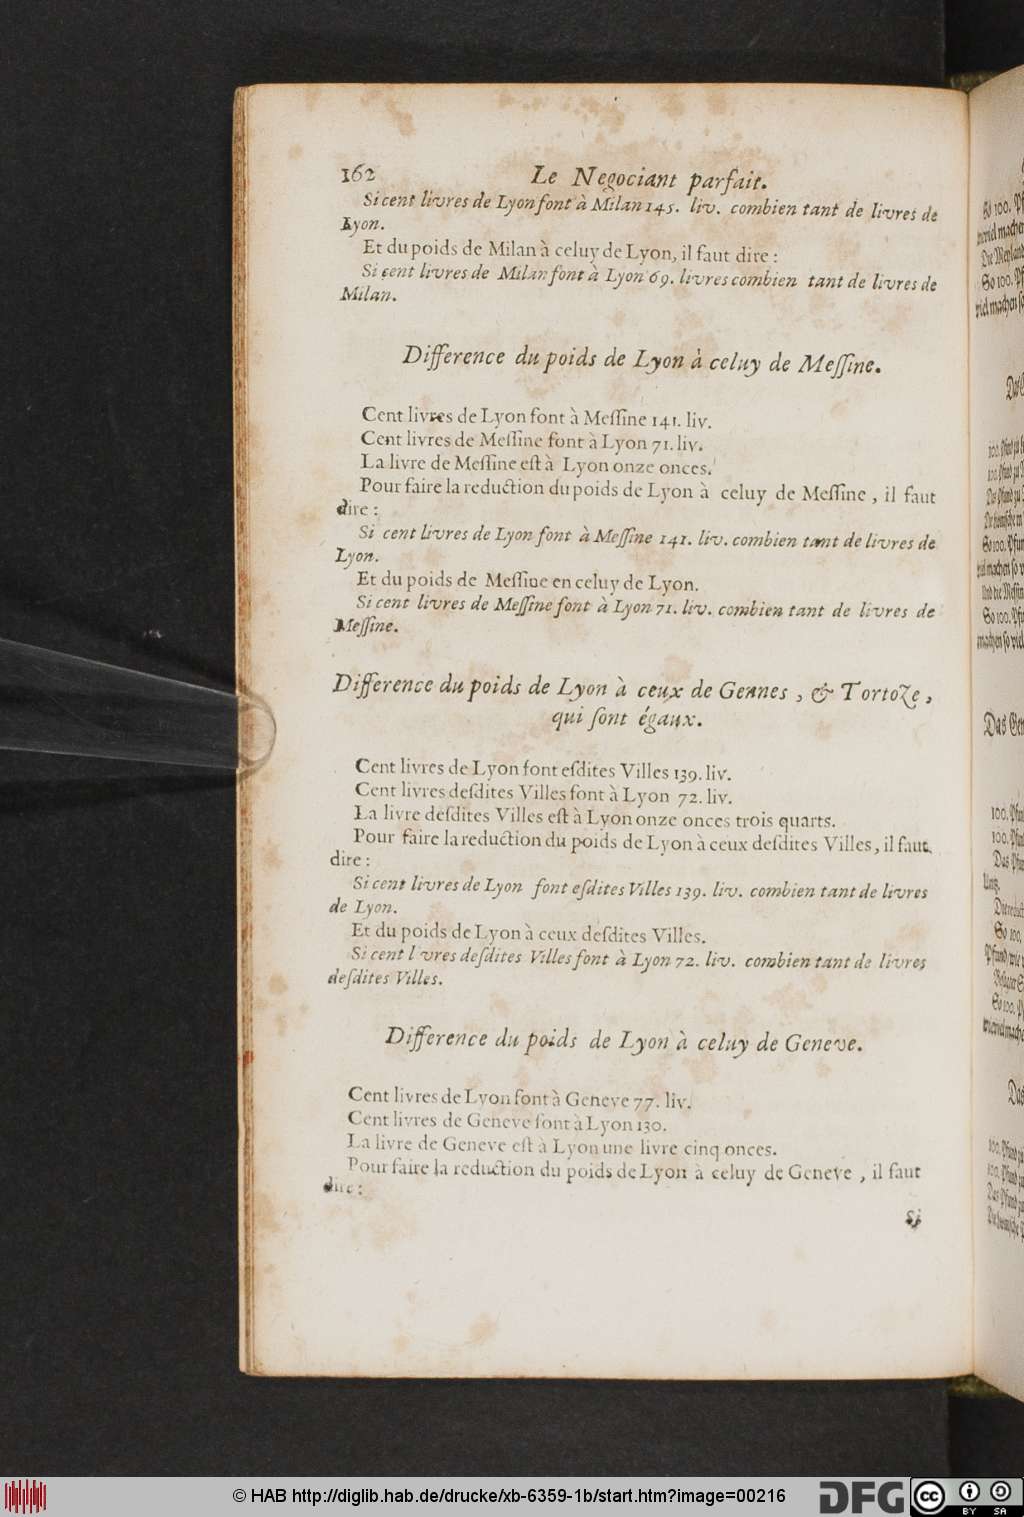 162 Le Negociant parfait.
Si cent livres de Lyon font à Milan 145. liv. combien tant de livres de
Lyon.
Et du poids de Milan à celuy de Lyon, il faut dire :
Si cent livres de Milan font à Lyon 69. livres combien tant de livres de
Milan.
Difference du poids de Lyon à celuy de Meſſine.
Cent livres de Lyon font à Meſſine 141. liv.
Cent livres de Meſſine font à Lyon 71. liv.
La livre de Meſſine eſt à Lyon onze onces.
Pour faire la reduction du poids de Lyon à celuy de Meſſine, il faut
dire :
Si cent livres de Lyon font à Meſſine 141. liv. combien tant de livres de
Lyon.
Et du poids de Meſſine en celuy de Lyon.
Si cent livres de Meſſine font à Lyon 71. liv. combien tant de livres de
Meſſine.
Difference du poids de Lyon à ceux de Gennes, & Tortoze,
qui ſont égaux.
Cent livres de Lyon font eſdites Villes 139. liv.
Cent livres deſdites Villes font à Lyon 72. liv.
La livre deſdites Villes eſt à Lyon onze onces trois quarts.
Pour faire la reduction du poids de Lyon à ceux deſdites Villes, il faut
dire :
Si cent livres de Lyon font eſdites Villes 139. liv. combien tant de livres
de Lyon.
Et du poids de Lyon à ceux deſdites Villes.
Si cent l vres deſdites Villes font à Lyon 72. liv. combien tant de livres
deſdites Villes.
Difference du poids de Lyon à celuy de Geneve.
Cent livres de Lyon font à Geneve 77. liv.
Cent livres de Geneve font à Lyon 130.
La livre de Geneve eſt à Lyon une livre cinq onces.
Pour faire la reduction du poids de Lyon à celuy de Geneve, il faut
dire :
Si
© HAB http://diglib.hab.de/drucke/xb-6359-1b/start.htm?image=00216
DFG
cc BY SA